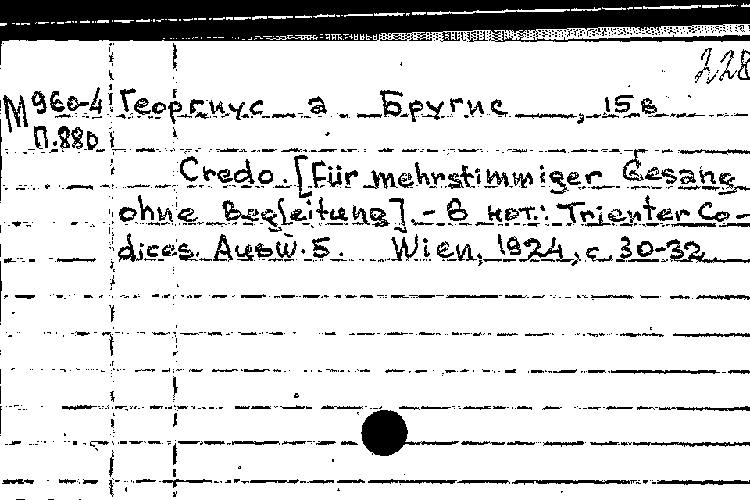 228
М 960-4 Георгиус а Бругис, 15 в
П.880
Credo. [Für mehrstimmiger Gesang
ohne Begleitung]. - В нот.: Trienter Co-
dices. Ausw. 5. Wien, 1924, с. 30-32